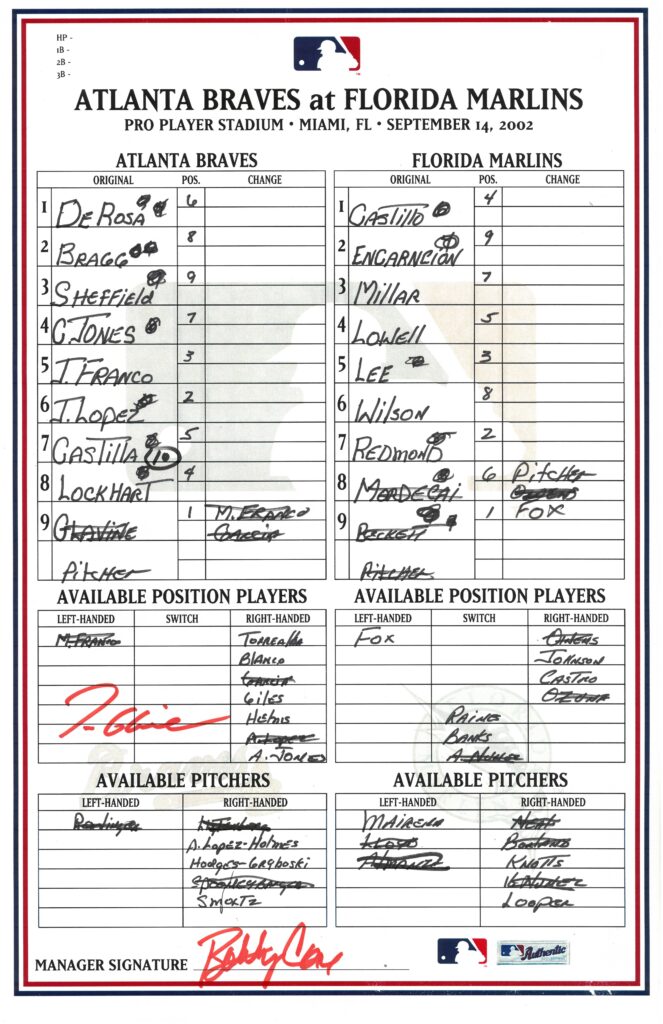 HP -
1B -
2B -
3B -
ATLANTA BRAVES at FLORIDA MARLINS
PRO PLAYER STADIUM • MIAMI, FL • SEPTEMBER 14, 2002
ATLANTA BRAVES
ORIGINAL POS. CHANGE
1 DeROSA 6
2 BRAGG 8
3 SHEFFIELD 9
4 C. JONES 7
5 J. FRANCO 3
6 J. LOPEZ 2
7 CASTILLA 5
8 LOCKHART 4
9 GLAVINE 1 M. FRANCO
GARCIA
PITCHER
FLORIDA MARLINS
ORIGINAL POS. CHANGE
1 CASTILLO 4
2 ENCARNCION 9
3 MILLAR 7
4 LOWELL 5
5 LEE 3
6 WILSON 8
7 REDMOND 2
8 MORDECAI 6 PITCHER
OWENS
9 BECKETT 1 FOX
PITCHER
AVAILABLE POSITION PLAYERS
LEFT-HANDED SWITCH RIGHT-HANDED
M. FRANCO TORREALBA
BLANCO
GARCIA
GILES
HELMS
A. LOPEZ
A. JONES
AVAILABLE POSITION PLAYERS
LEFT-HANDED SWITCH RIGHT-HANDED
FOX OWENS
JOHNSON
CASTRO
OZUNA
RAINES
BANKS
AVAILABLE PITCHERS
LEFT-HANDED RIGHT-HANDED
REMLINGER
A. LOPEZ-HOLMES
HODGES-GRYBOSKI
SMOLTZ
AVAILABLE PITCHERS
LEFT-HANDED RIGHT-HANDED
MAIRENA NEAL
LLOYD BORLAND
ALMANZA KNOTTS
LOOPER
MANAGER SIGNATURE Bobby Cox
Authentic